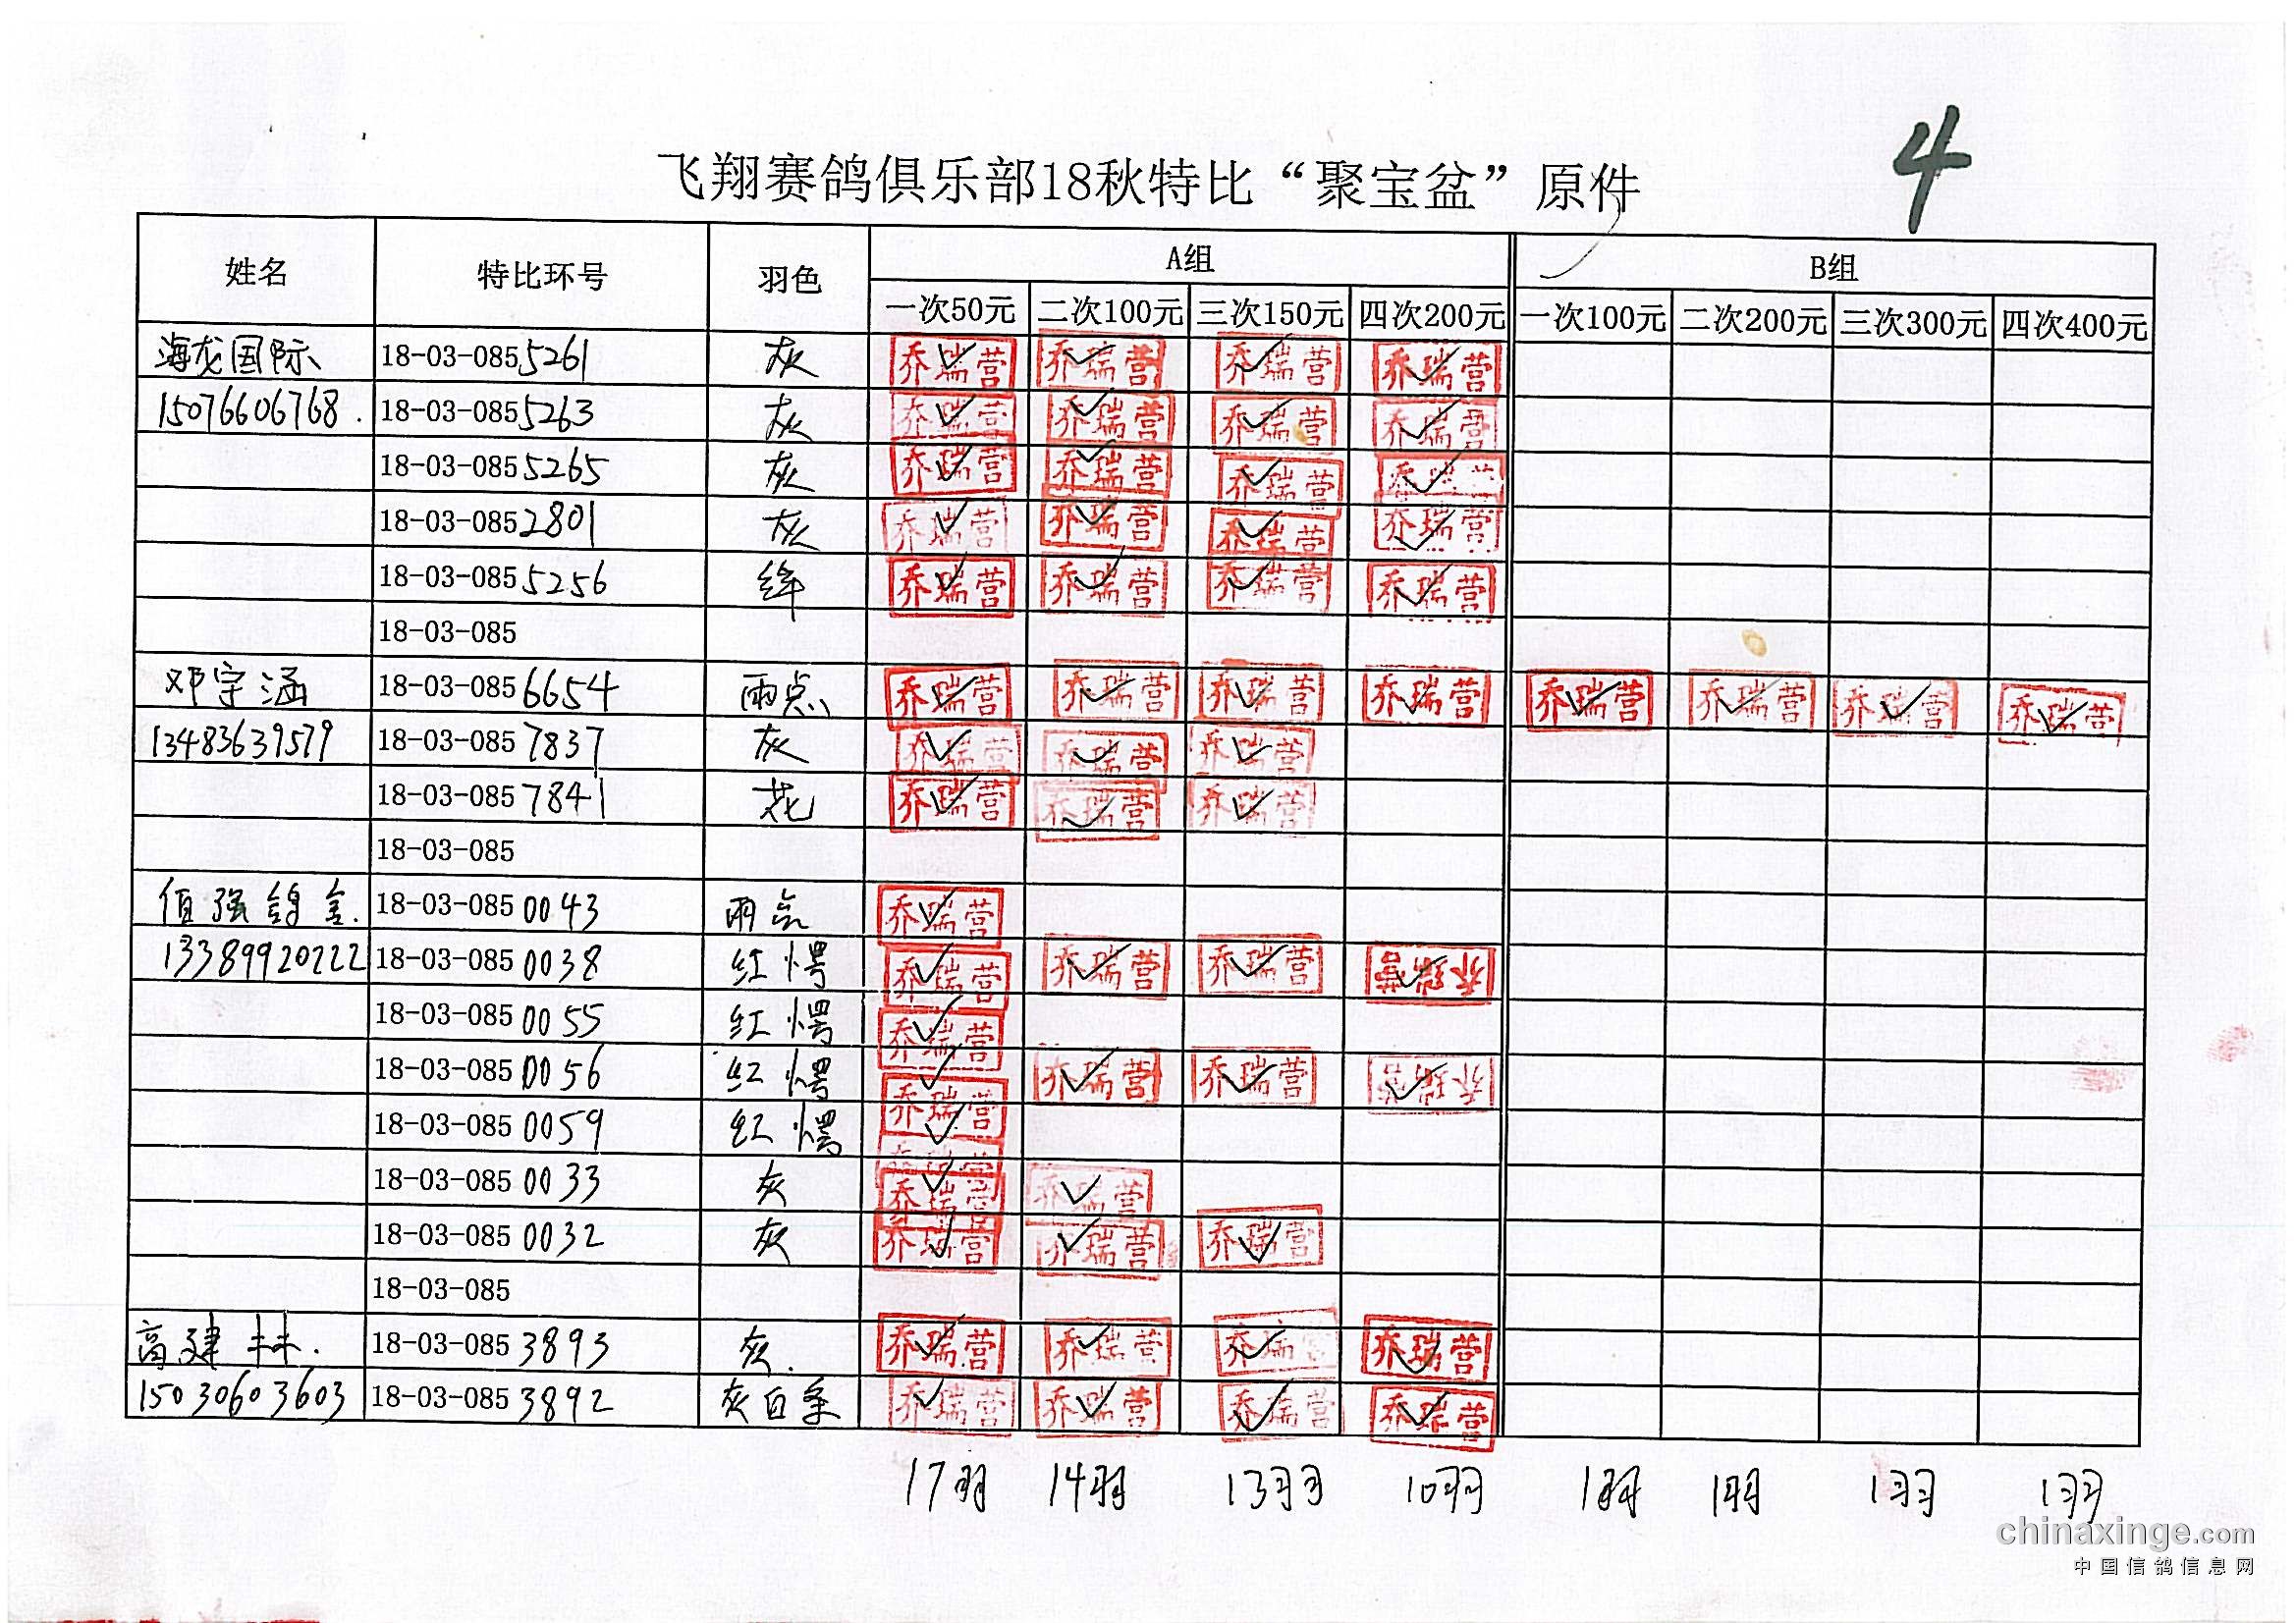 4
飞翔赛鸽俱乐部18秋特比“聚宝盆”原件
姓名 特比环号 羽色 A组 B组
一次50元 二次100元 三次150元 四次200元 一次100元 二次200元 三次300元 四次400元
海龙国际 18-03-085 5261 灰 乔瑞营 乔瑞营 乔瑞营 乔瑞营
15076606768. 18-03-085 5263 灰 乔瑞营 乔瑞营 乔瑞营 乔瑞营
18-03-085 5265 灰 乔瑞营 乔瑞营 乔瑞营 乔瑞营
18-03-085 2801 灰 乔瑞营 乔瑞营 乔瑞营 乔瑞营
18-03-085 5256 绛 乔瑞营 乔瑞营 乔瑞营 乔瑞营
18-03-085
邓宇涵 18-03-085 6654 雨点 乔瑞营 乔瑞营 乔瑞营 乔瑞营 乔瑞营 乔瑞营 乔瑞营 乔瑞营
13483639579 18-03-085 7837 灰 乔瑞营 乔瑞营 乔瑞营
18-03-085 7841 花 乔瑞营 乔瑞营 乔瑞营
18-03-085
值强鸽舍. 18-03-085 0043 雨点 乔瑞营
13389920222 18-03-085 0038 红楞 乔瑞营 乔瑞营 乔瑞营 乔瑞营
18-03-085 0055 红楞 乔瑞营
18-03-085 0056 红楞 乔瑞营 乔瑞营 乔瑞营 乔瑞营
18-03-085 0059 红楞 乔瑞营
18-03-085 0033 灰 乔瑞营 乔瑞营
18-03-085 0032 灰 乔瑞营 乔瑞营 乔瑞营
18-03-085
高建林. 18-03-085 3893 灰. 乔瑞营 乔瑞营 乔瑞营 乔瑞营
15030603603 18-03-085 3892 灰白条 乔瑞营 乔瑞营 乔瑞营 乔瑞营
17羽 14羽 13羽 10羽 1羽 1羽 1羽 1羽
chinaxinge.com
中国信鸽信息网